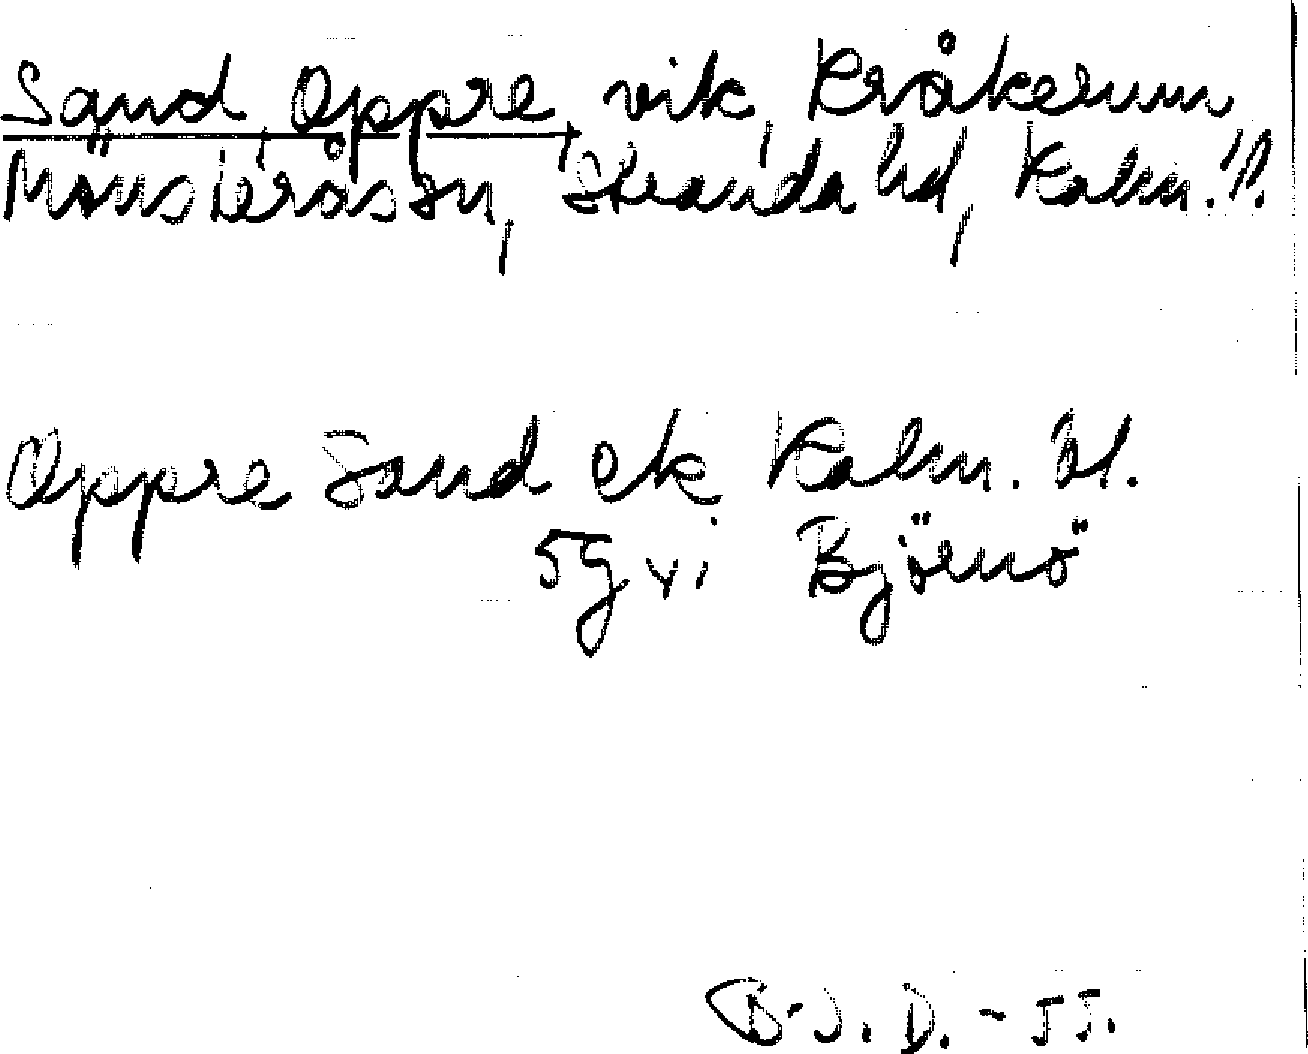 Sand, Oppre, vik, Kråkerum,
Mönsterås sn, Stranda hd, Kalm. l.
Oppre Sand ek Kalm. bl.
5g vi Björnö
B-J. D. - 55.